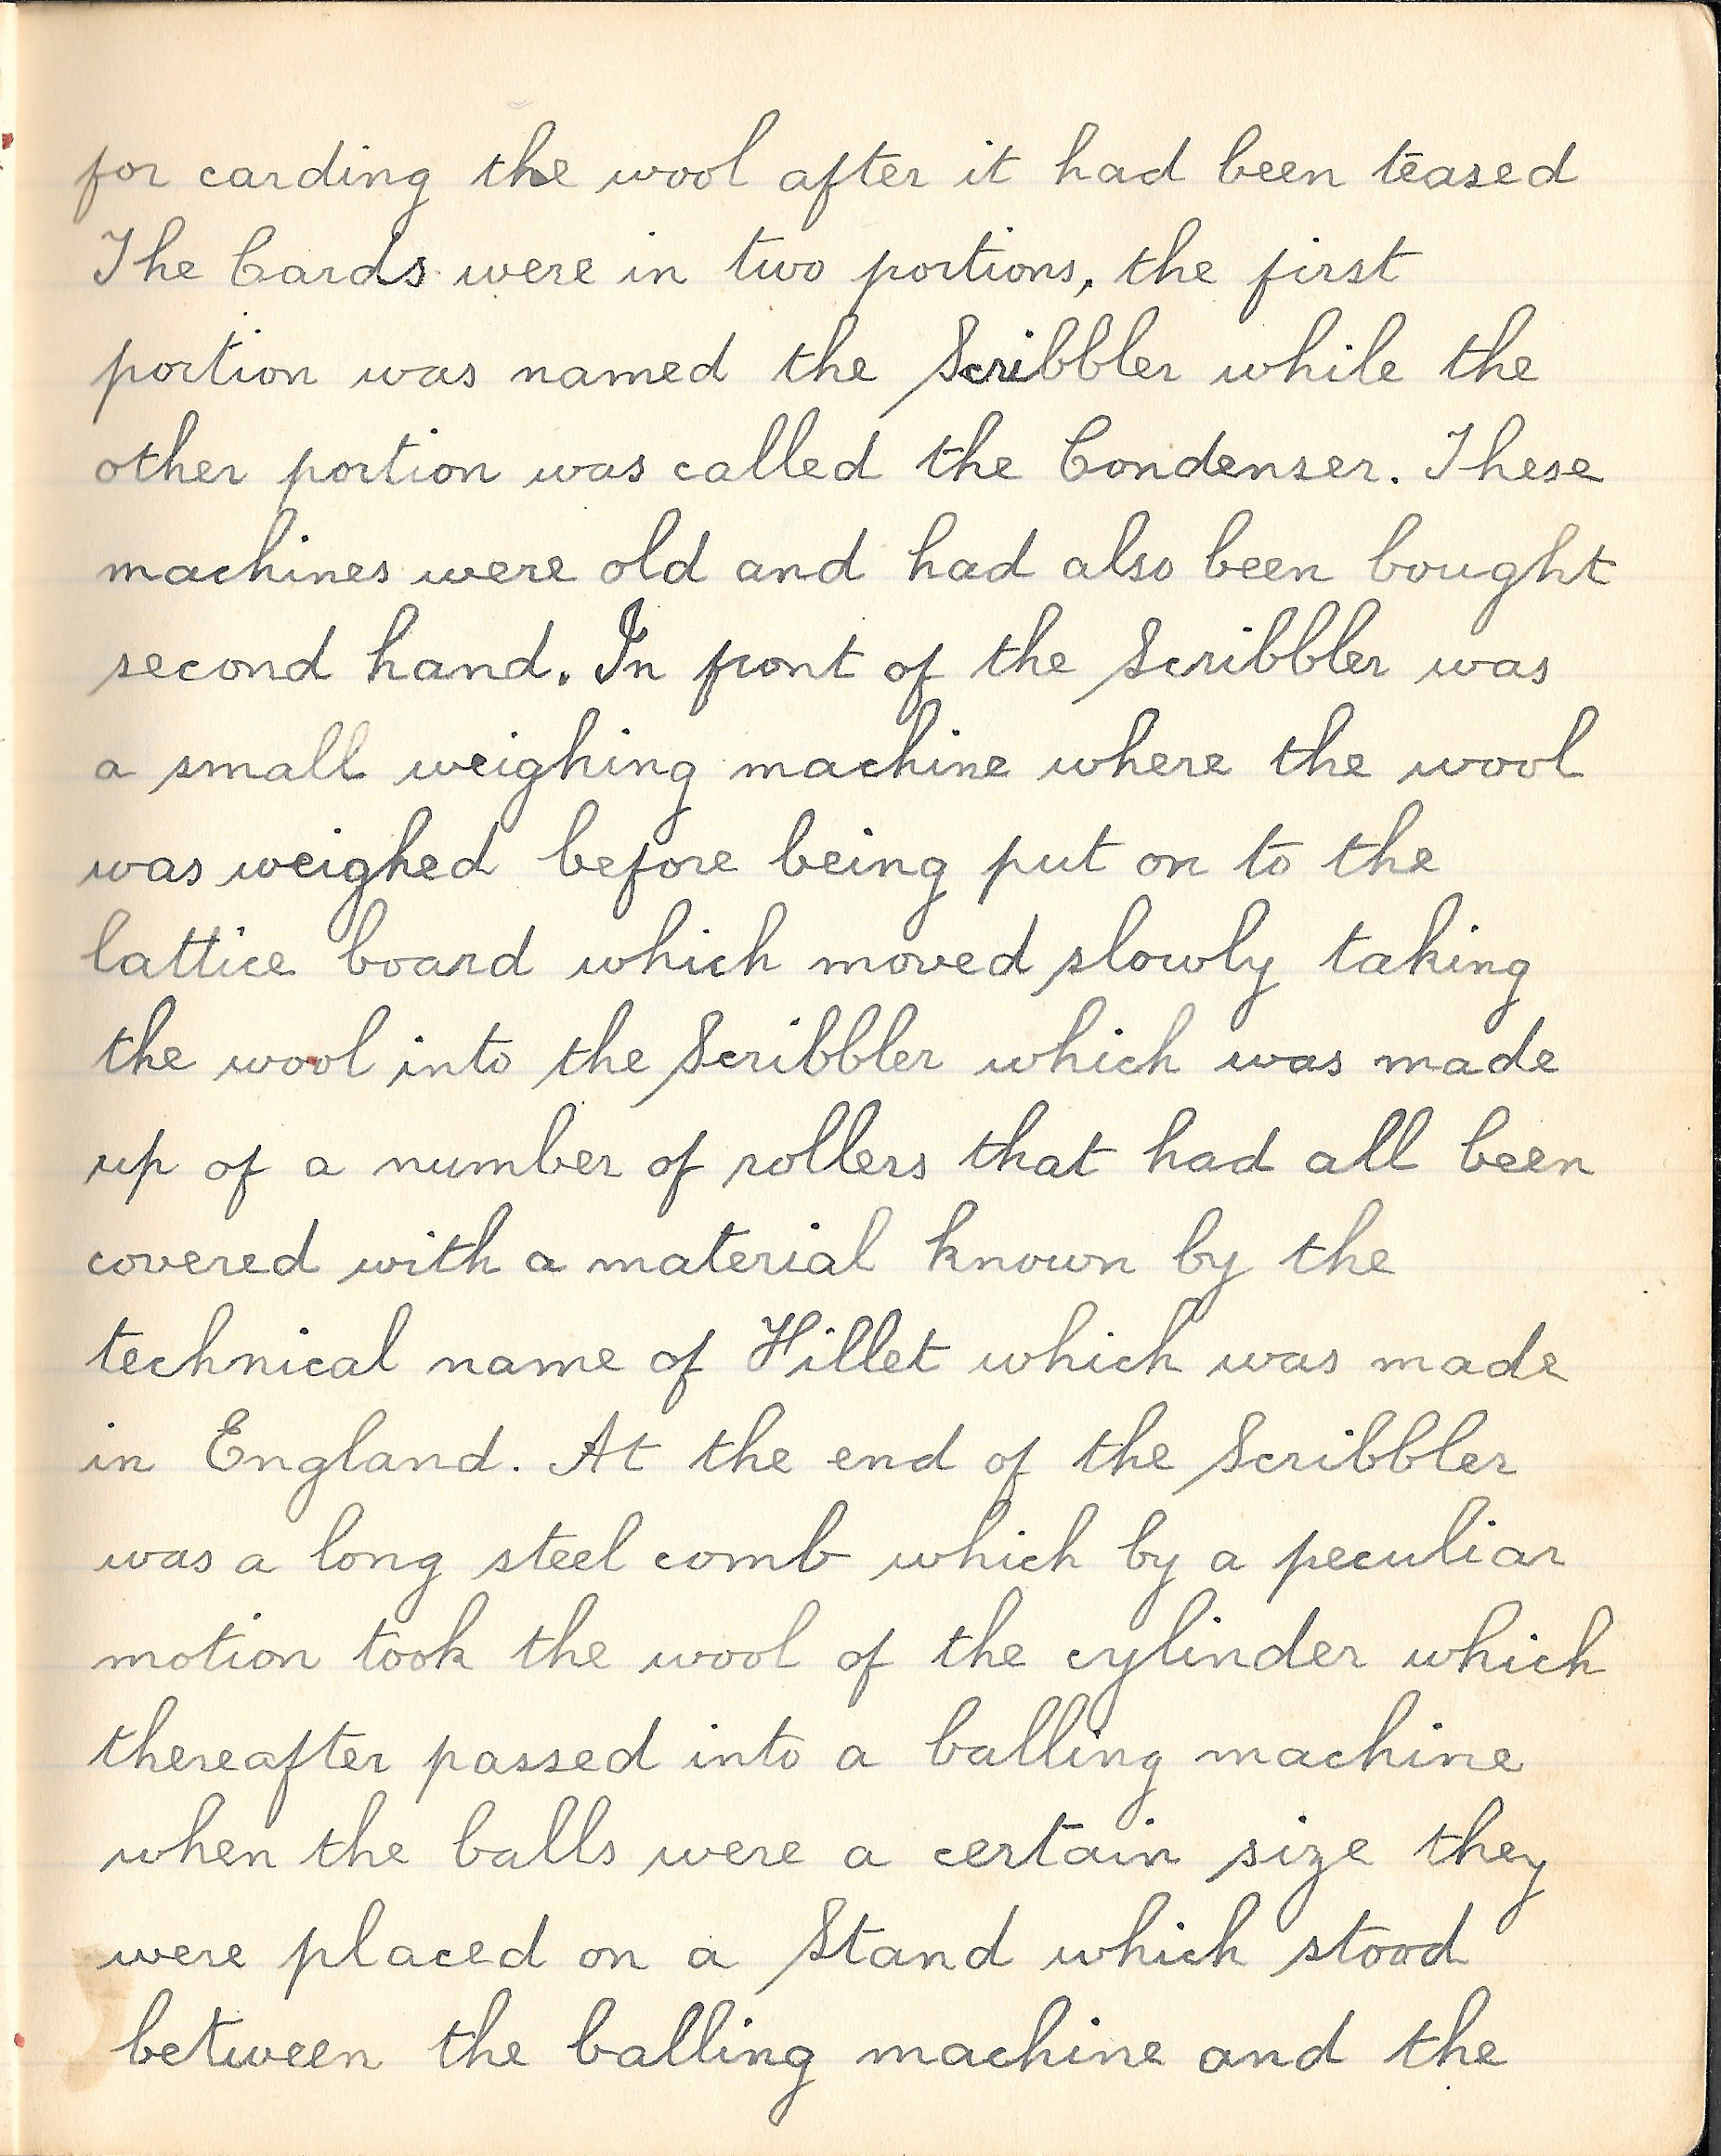 for carding the wool after it had been teased
The Cards were in two portions, the first
portion was named the Scribbler while the
other portion was called the Condenser. These
machines were old and had also been bought
second hand. In front of the Scribbler was
a small weighing machine where the wool
was weighed before being put on to the
lattice board which moved slowly taking
the wool into the Scribbler which was made
up of a number of rollers that had all been
covered with a material known by the
technical name of Fillet which was made
in England. At the end of the Scribbler
was a long steel comb which by a peculiar
motion took the wool of the cylinder which
thereafter passed into a balling machine
when the balls were a certain size they
were placed on a Stand which stood
between the balling machine and the